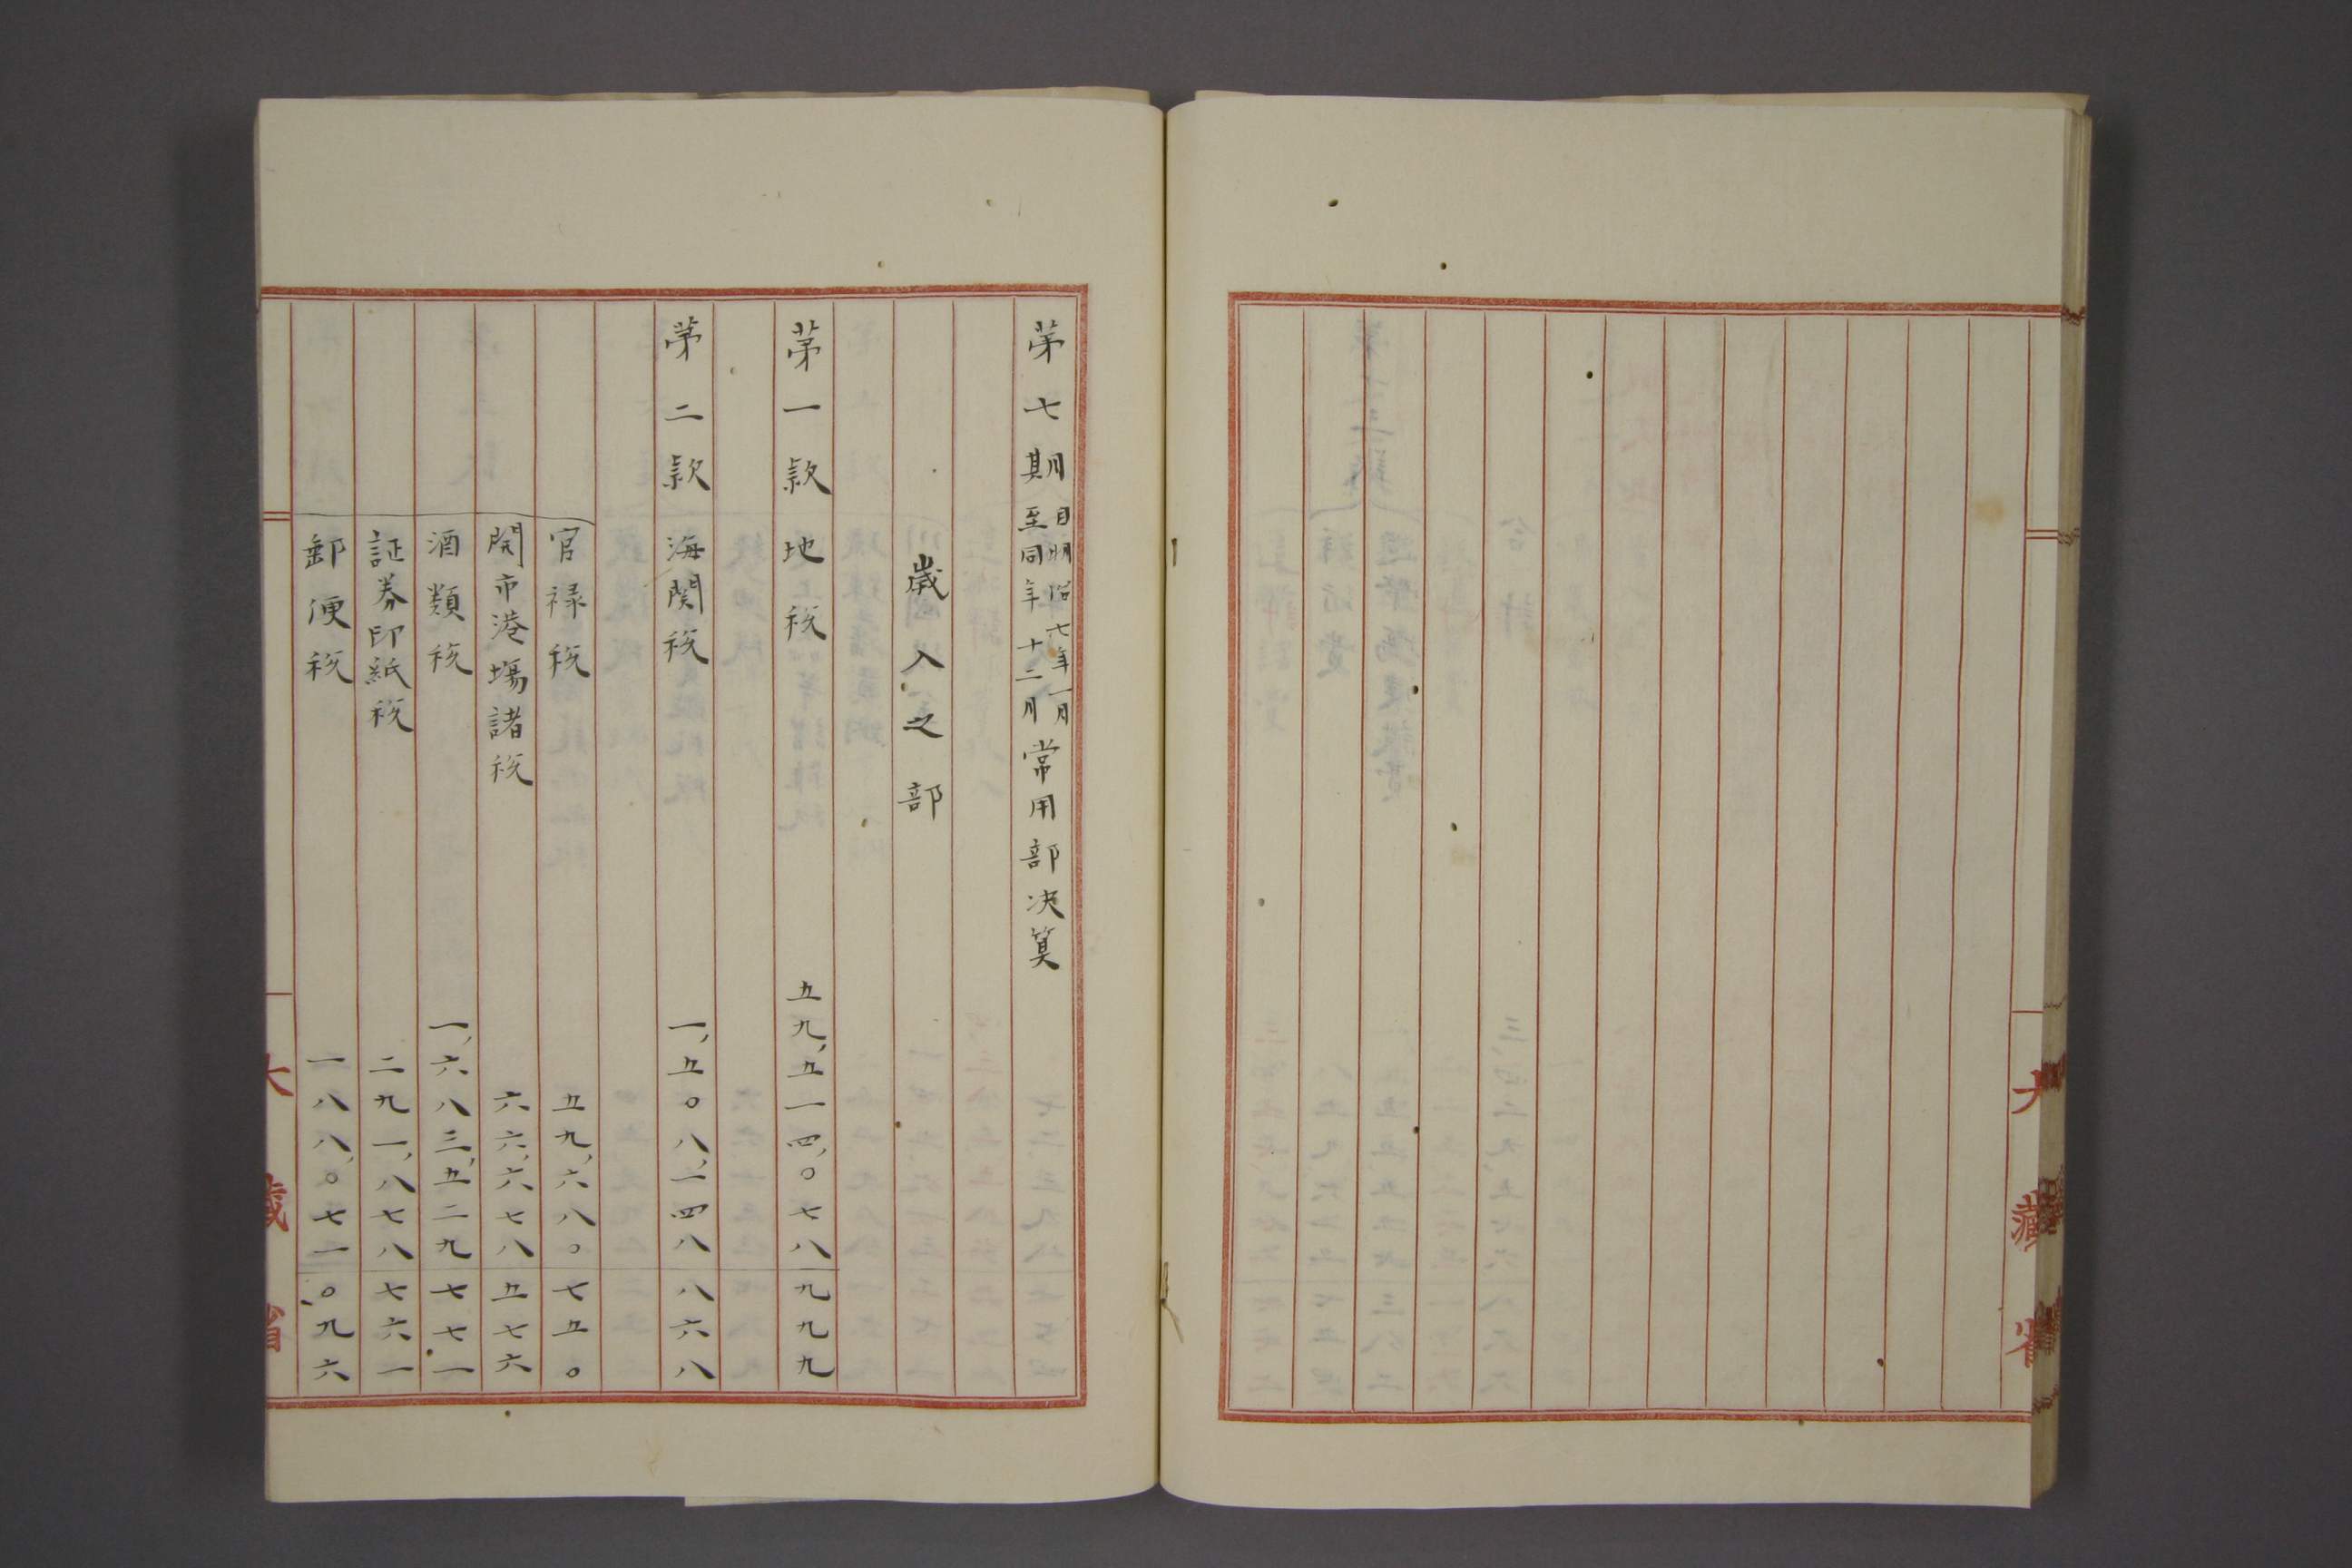 大藏省
第七期 自明治七年一月
至同年十二月 常用部決算
歳入之部
第一款 地税 五九,五一四,〇七八 九九九
第二款 海関税 一,五〇八,一四八 八六八
官禄税 五九,六八〇 七五〇
開市港場諸税 六六,六七八 五七六
酒類税 一,六八三,五二九 七七一
証券印紙税 二九一,八七八 七六一
郵便税 一八八,〇七一 〇九六
大藏省